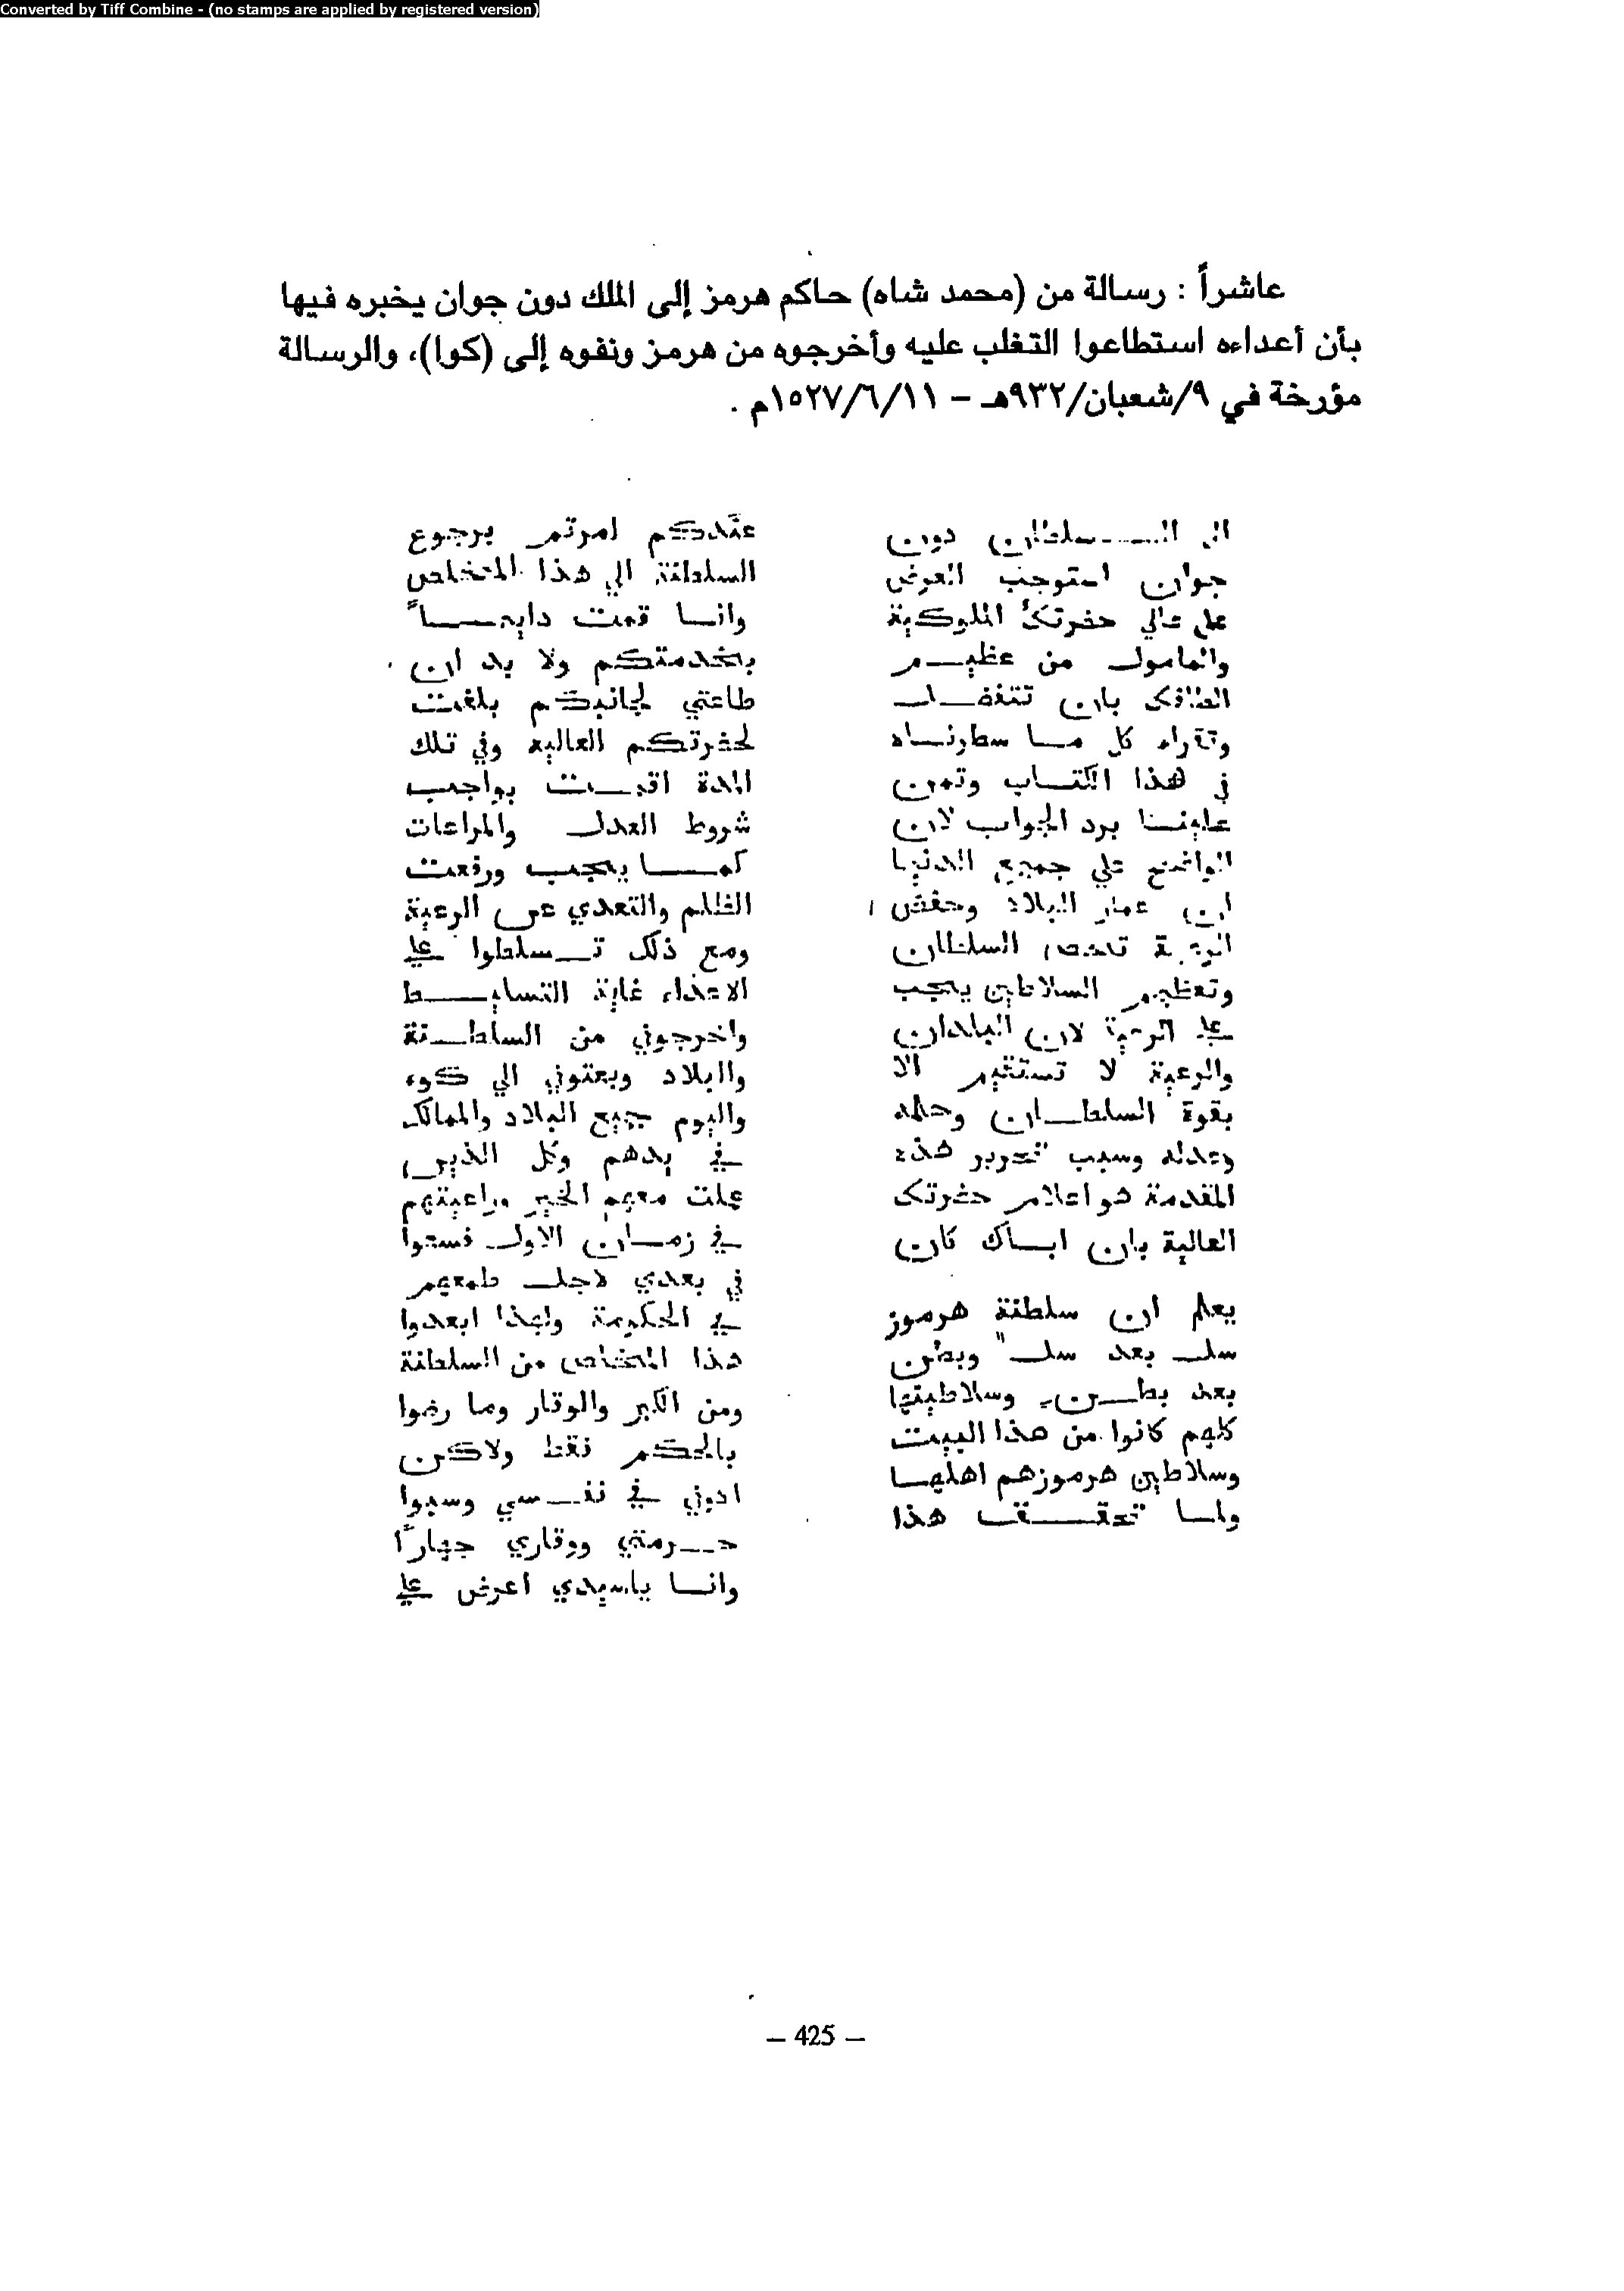 Converted by Tiff Combine - (no stamps are applied by registered version)
عاشراً : رسالة من (محمد شاه) حاكم هرمز إلى الملك دون جوان يخبره فيها
بأن أعداءه استطاعوا التغلب عليه وأخرجوه من هرمز ونفوه إلى (كوا)، والرسالة
مؤرخة في ٩/شعبان/٩٣٢هـ – ١٥٢٧/٦/١١م .
الى السلطان دون
جوان استوجب العرض
على عالي حضرتك الملوكية
والمامول من عظيم
الطافك بان تتفضل
وتقراء كل ما سطرناه
في هذا الكتاب وتمن
علينا برد الجواب لان
الواضح علي جميع الدنيا
ان عمار البلاد وحفض
السلطان
وتعظيم السلاطين يجب
على الرعية لان البلدان
والرعية لا تستقيم الا
بقوة السلطان وحلمه
وعدله وسبب تحرير هذه
المقدمة هو اعلام حضرتك
العالية بان اباك كان
يعلم ان سلطنة هرموز
سل بعد سل وبطن
بعد بطن وسلاطينها
كلهم كانوا من هذا البيت
وسلاطين هرموزهم اهلها
ولما تحقق هذا
عندكم امرتم برجوع
السلطنة الي هذا المتخلص
وانا قمت دايماً
بخدمتكم ولا بد ان
طاعتي لجانبكم بلغت
لحضرتكم العالية وفي تلك
المدة اقمت بواجب
شروط العدل والمراعات
كما يجب ورفعت
الظلم والتعدي عن الرعية
ومع ذلك تسلطوا على
الاعداء غاية التسليط
واخرجوني من السلطنة
والبلاد وبعتوني الي كوه
واليوم جميع البلاد والممالك
في يدهم وكل الذين
عملت معهم الخير وراعيتهم
في زمان الاول فسعوا
في بعدي لاجل طمعهم
في الحكومة ولهذا ابعدوا
هذا المتخلص من السلطنة
ومن الكبر والوقار وما رضوا
بالحكم فقط ولاكن
ادوني في نفسي وسبوا
حرمتي ووقاري جهاراً
وانا ياسيدي اعرض على
– 425 –